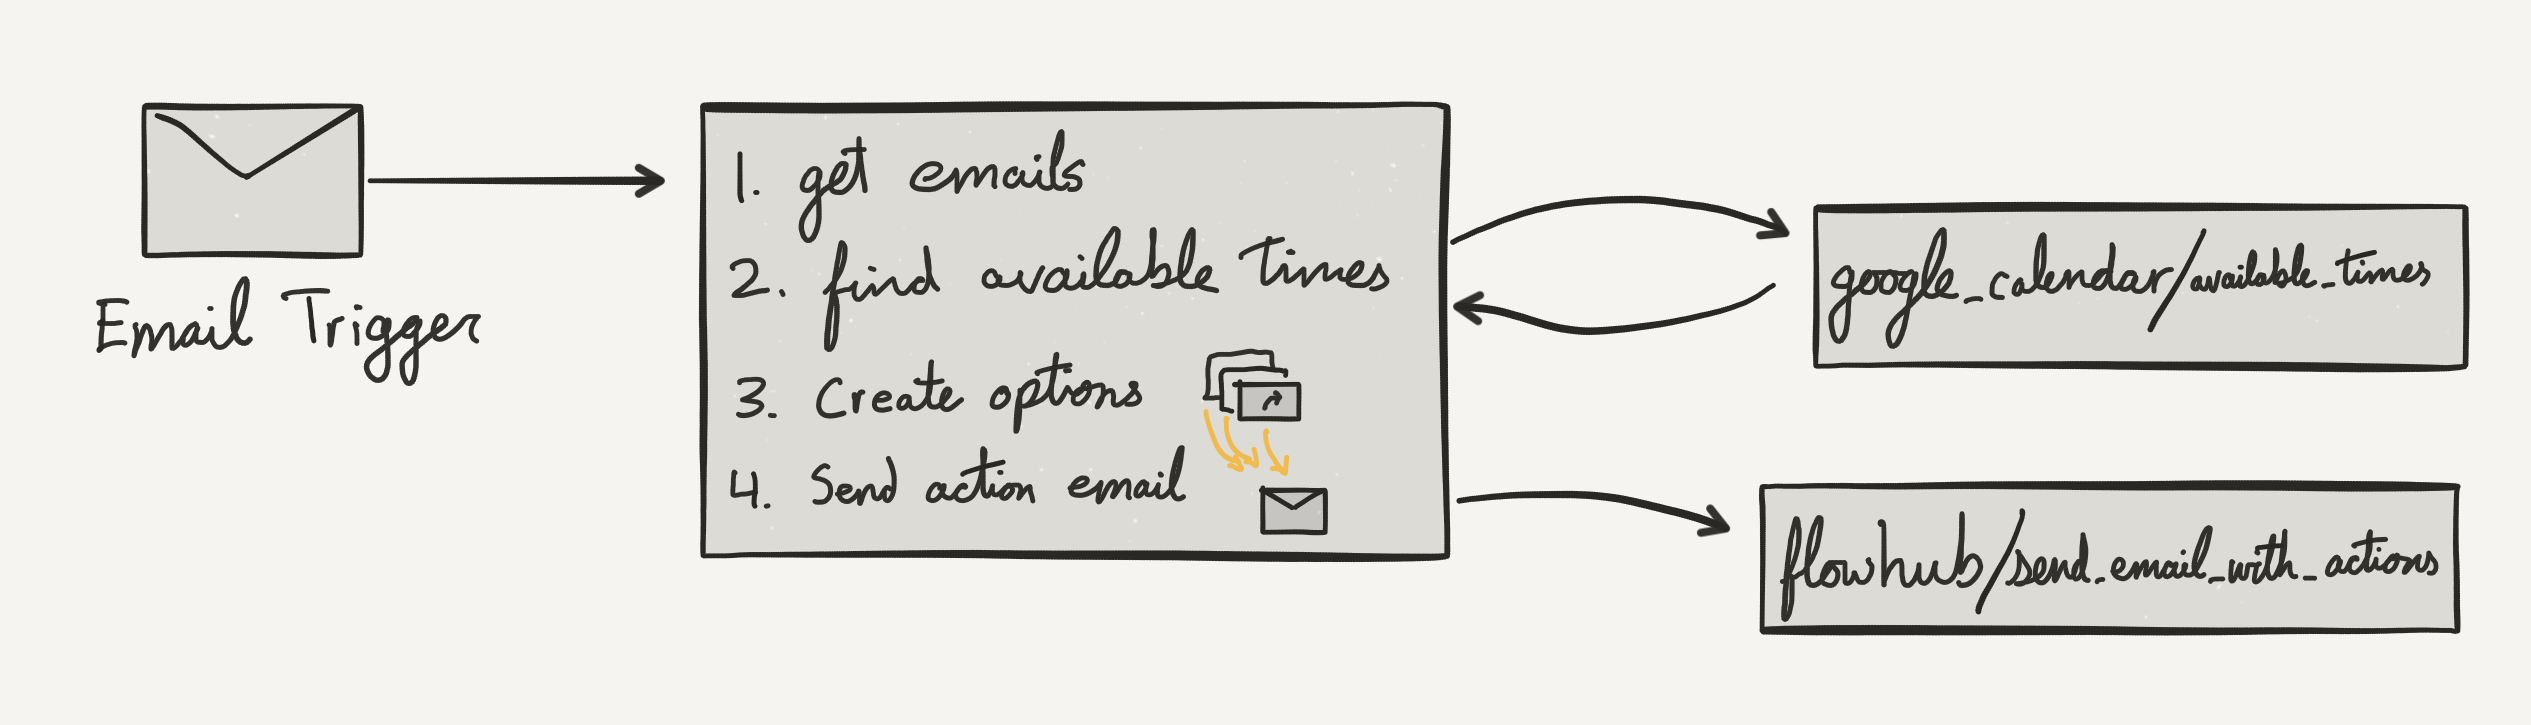 Email Trigger
1. get emails
2. find available times
3. Create options
4. Send action email
google_calendar/available_times
flowhub/send_email_with_actions